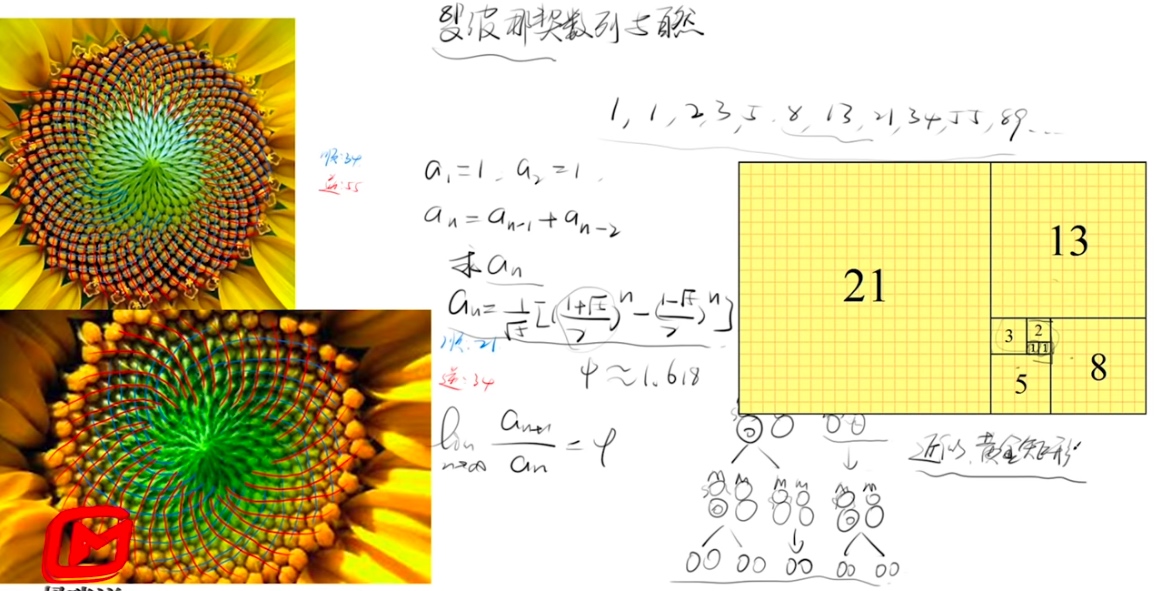 斐波那契数列与自然
1, 1, 2, 3, 5, 8, 13, 21, 34, 55, 89...
顺:34
逆:55
a₁=1, a₂=1,
aₙ=aₙ₋₁+aₙ₋₂
求aₙ
aₙ=1/√5[(1+√5/2)ⁿ-(1-√5/2)ⁿ]
顺:21
逆:34
φ≈1.618
lim n→∞ aₙ₊₁/aₙ=φ
21
13
3
2
1
1
5
8
近似黄金矩形